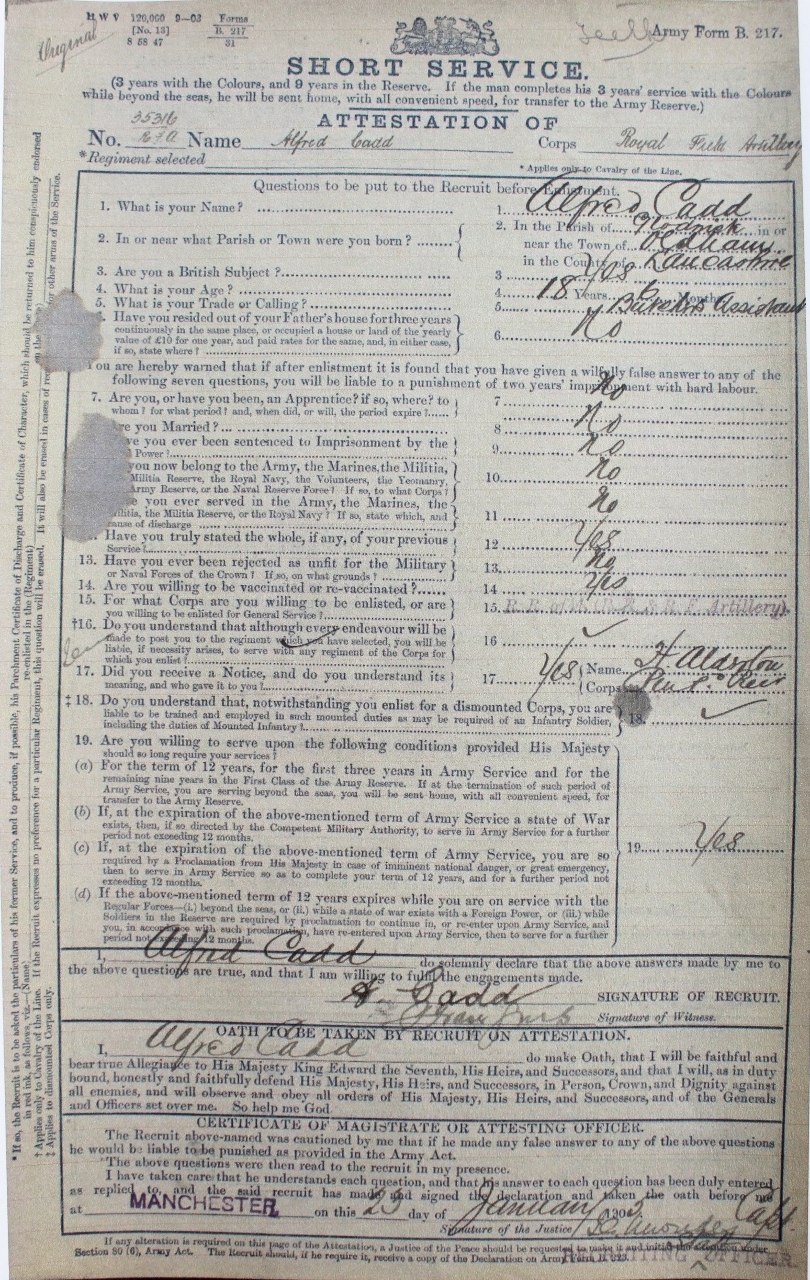 H W V 120,000 9—03 Forms
[No. 13] B. 217
8 58 47 31
Original
Army Form B. 217.
SHORT SERVICE.
(3 years with the Colours, and 9 years in the Reserve. If the man completes his 3 years' service with the Colours
while beyond the seas, he will be sent home, with all convenient speed, for transfer to the Army Reserve.)
ATTESTATION OF
35316
No. Name Alfred Cadd Corps Royal Field Artillery
*Regiment selected
* Applies only to Cavalry of the Line.
Questions to be put to the Recruit before Enlistment.
1. What is your Name? 1. Alfred Cadd
2. In or near what Parish or Town were you born? 2. In the Parish of in or
near the Town of
in the County of Lancashire
3. Are you a British Subject? 3 Yes
4. What is your Age? 4. 18 Years 6 Months
5. What is your Trade or Calling? 5. Assistant
Have you resided out of your Father's house for three years
continuously in the same place, or occupied a house or land of the yearly
value of £10 for one year, and paid rates for the same, and, in either case,
if so, state where? 6. No
You are hereby warned that if after enlistment it is found that you have given a wilfully false answer to any of the
following seven questions, you will be liable to a punishment of two years' imprisonment with hard labour.
7. Are you, or have you been, an Apprentice? if so, where? to
whom? for what period? and, when did, or will, the period expire? 7 No
you Married? 8 No
you ever been sentenced to Imprisonment by the
Power? 9 No
you now belong to the Army, the Marines, the Militia,
Militia Reserve, the Royal Navy, the Volunteers, the Yeomanry,
Army Reserve, or the Naval Reserve Force? If so, to what Corps? 10. No
you ever served in the Army, the Marines, the
Militia, the Militia Reserve, or the Royal Navy? If so, state which, and
cause of discharge 11 No
Have you truly stated the whole, if any, of your previous
Service? 12 Yes
13. Have you ever been rejected as unfit for the Military
or Naval Forces of the Crown? If so, on what grounds? 13. No
14. Are you willing to be vaccinated or re-vaccinated? 14 Yes
15. For what Corps are you willing to be enlisted, or are
you willing to be enlisted for General Service? 15. Artillery)
†16. Do you understand that although every endeavour will be
made to post you to the regiment which you have selected, you will be
liable, if necessity arises, to serve with any regiment of the Corps for
which you enlist? 16 ✓
17. Did you receive a Notice, and do you understand its
meaning, and who gave it to you? 17 Yes Name
Corps
‡18. Do you understand that, notwithstanding you enlist for a dismounted Corps, you are
liable to be trained and employed in such mounted duties as may be required of an Infantry Soldier,
including the duties of Mounted Infantry? 18. ✓
19. Are you willing to serve upon the following conditions provided His Majesty
should so long require your services?
(a) For the term of 12 years, for the first three years in Army Service and for the
remaining nine years in the First Class of the Army Reserve. If at the termination of such period of
Army Service, you are serving beyond the seas, you will be sent home, with all convenient speed, for
transfer to the Army Reserve.
(b) If, at the expiration of the above-mentioned term of Army Service a state of War
exists, then, if so directed by the Competent Military Authority, to serve in Army Service for a further
period not exceeding 12 months.
19 Yes
(c) If, at the expiration of the above-mentioned term of Army Service, you are so
required by a Proclamation from His Majesty in case of imminent national danger, or great emergency,
then to serve in Army Service so as to complete your term of 12 years, and for a further period not
exceeding 12 months.
(d) If the above-mentioned term of 12 years expires while you are on service with the
Regular Forces—(i.) beyond the seas, or (ii.) while a state of war exists with a Foreign Power, or (iii.) while
Soldiers in the Reserve are required by proclamation to continue in, or re-enter upon Army Service, and
you, in accordance with such proclamation, have re-entered upon Army Service, then to serve for a further
period not exceeding 12 months.
I, Alfred Cadd do solemnly declare that the above answers made by me to
the above questions are true, and that I am willing to fulfil the engagements made.
A. Cadd SIGNATURE OF RECRUIT.
Signature of Witness.
OATH TO BE TAKEN BY RECRUIT ON ATTESTATION.
I, Alfred Cadd do make Oath, that I will be faithful and
bear true Allegiance to His Majesty King Edward the Seventh, His Heirs, and Successors, and that I will, as in duty
bound, honestly and faithfully defend His Majesty, His Heirs, and Successors, in Person, Crown, and Dignity against
all enemies, and will observe and obey all orders of His Majesty, His Heirs, and Successors, and of the Generals
and Officers set over me. So help me God.
CERTIFICATE OF MAGISTRATE OR ATTESTING OFFICER.
The Recruit above-named was cautioned by me that if he made any false answer to any of the above questions
he would be liable to be punished as provided in the Army Act.
The above questions were then read to the recruit in my presence.
I have taken care that he understands each question, and that his answer to each question has been duly entered
as replied to, and the said recruit has made and signed the declaration and taken the oath before me
at MANCHESTER on this 23 day of January 190
Signature of the Justice Capt.
If any alteration is required on this page of the Attestation, a Justice of the Peace should be requested to make it and initial the alteration under
Section 80 (6), Army Act. The Recruit should, if he require it, receive a copy of the Declaration on Army Form B. 223.
OFFICER
* If so, the Recruit is to be asked the particulars of his former Service, and to produce, if possible, his Parchment Certificate of Discharge and Certificate of Character, which should be returned to him conspicuously endorsed
in red ink, as follows, viz.—(Name) re-enlisted in the (Regiment) on the (Date)
† Applies only to Cavalry of the Line. If the Recruit expresses no preference for a particular Regiment, this question will be erased. It will also be erased in cases of for other arms of the Service.
‡ Applies to dismounted Corps only.